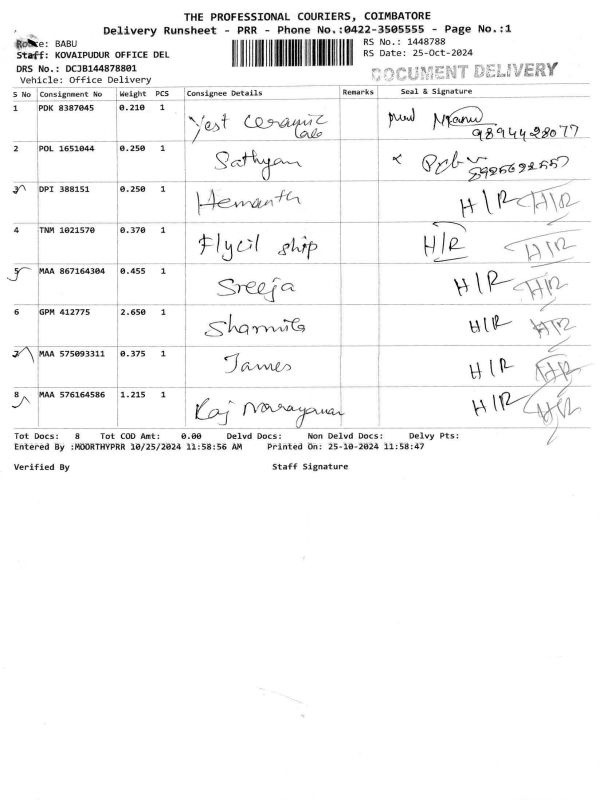 THE PROFESSIONAL COURIERS, COIMBATORE
Delivery Runsheet - PRR - Phone No.:0422-3505555 - Page No.:1
Route: BABU
RS No.: 1448788
Staff: KOVAIPUDUR OFFICE DEL
RS Date: 25-Oct-2024
DRS No.: DCJB144878801
DOCUMENT DELIVERY
Vehicle: Office Delivery
S No Consignment No Weight PCS Consignee Details Remarks Seal & Signature
1 PDK 8387045 0.210 1 Yest Ceramic
Lab 9894428077
2 POL 1651044 0.250 1 Sathyan
3 DPI 388151 0.250 1 Hemanth H/R H/R
4 TNM 1021570 0.370 1 Flycil ship H/R H/R
5 MAA 867164304 0.455 1 Sreeja H/R H/R
6 GPM 412775 2.650 1 Sharmila H/R H/R
7 MAA 575093311 0.375 1 James H/R H/R
8 MAA 576164586 1.215 1 Raj Narayanan H/R H/R
Tot Docs: 8 Tot COD Amt: 0.00 Delvd Docs: Non Delvd Docs: Delvy Pts:
Entered By :MOORTHYPRR 10/25/2024 11:58:56 AM Printed On: 25-10-2024 11:58:47
Verified By Staff Signature